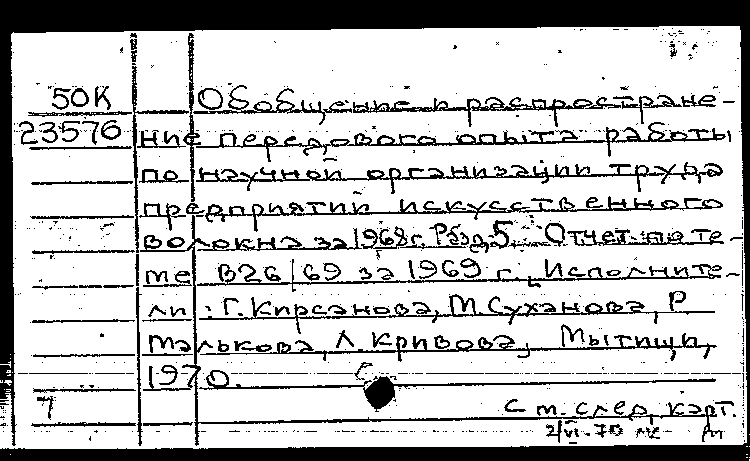 50К Обобщение и распростране-
23576 ние передового опыта работы
по научной организации труда
предприятий искусственного
волокна за 1968 г. Разд. 5. Отчет по те-
ме В26/69 за 1969 г., Исполните-
ли: Г. Кирсанова, М. Суханова, Р.
Малькова, Л. Кривова, Мытищи,
1970.
7 См. след. карт.
2/VI-70